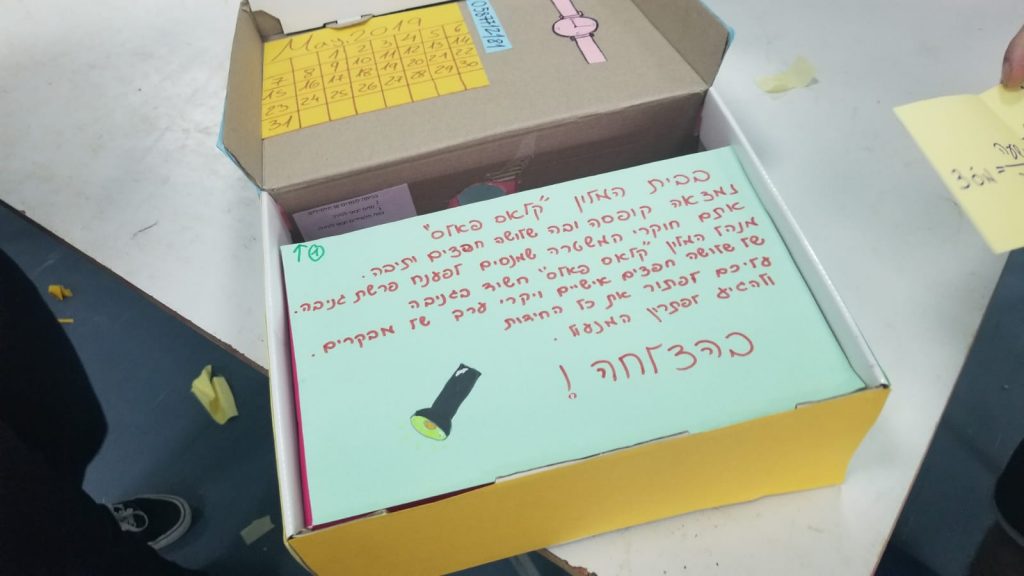 May 2019
1 2 3 4 5 6
7 8 9 10 11 12 13 14
15 16 17 18 19 20 21 22
23 24 25 26 27 28 29 30
31
0587712181
בבית המלון "קלאס פאלס"
נמצאה קופסה ובה שלושה חפצים ותיבה.
אתם חוקרי המשטרה שמנסים לפענח פרשת גניבה.
מנהל המלון "קלאס פאלס" חשיד בגניבה
של שלושה חפצים אישיים ויקרי ערך של מבקרים.
עליכם לפתור את כל החידות
ולהגיע לפתרון המנעול.
בהצלחה!